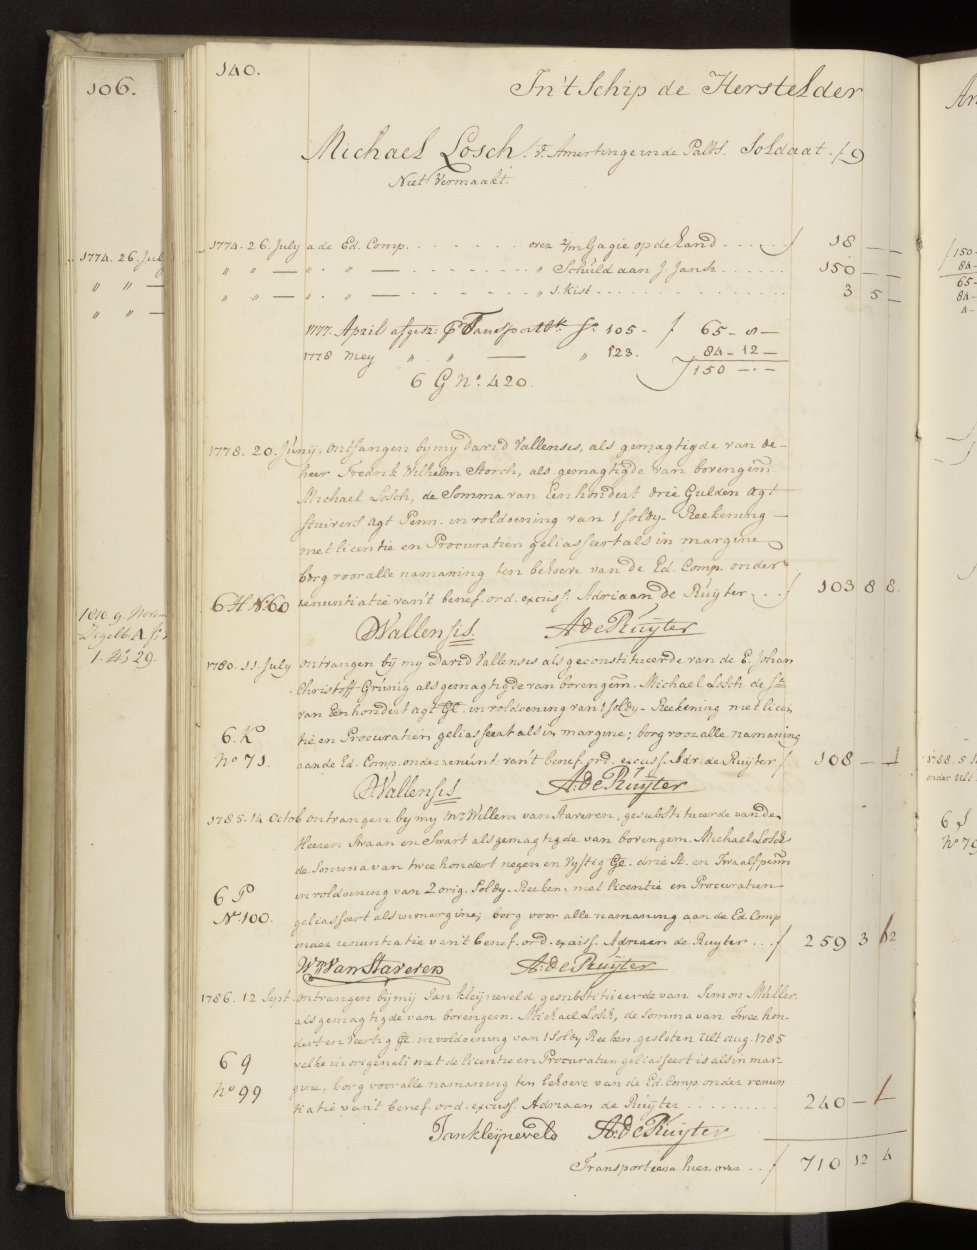 106.
140.
In't Schip de Herstelder
Michael Losch. v. Amertinge inde Palts. Soldaat. ƒ 9
Niet Vermaakt.
1774. 26. July a de Ed. Comp. . . . . . . . over 2/m Gagie op de hand . . . . ƒ 18 — —
" " — " . " — . . . . . . . " Schuld aan J. Jansz . . . . . . 150 — —
" " — " . " — . . . . . . . " 1 kist . . . . . . . . . . . . . . 3 5 —
1777. April afgesz: P Transportbk. fo. 105 - ƒ 65 - 8 —
1778 Mey " " — " 123. 84 - 12 —
6 G No. 420. ƒ 150 — . —
1778. 20. Junij. Ontfangen by my David Vallensis, als gemagtigde van de
heer Fredrik Wilhelm Storch, als gemagtigde van bovengem
Michael Losch, de Somma van Een hondert drie Gulden Agt
stuivers Agt Penn. in voldoening van 1 soldy. Reekening
met licentie en Procuratien geliasseert als in margine
borg voor alle namaning ten behoeve van de Ed. Comp. onder
6 H No. 60 renuntiatie van't benef. ord. excuss. Adriaan De Ruyter . . ƒ 103 8 8.
DVallensis. A. de Ruijter
1780. 11. July ontvangen bij my David Vallensis als geconstitueerde van de E. Johan
Christoff Grünig als gemagtigde van bovengem. Michael Losch de Sa.
van Een hondert agt Gl. in voldoening van 1 soldy- Reekening met licen
6. K
tie en Procuratien geliasseert als in margine; borg voor alle namaning
No 71. aan de Ed. Comp. onder renunt. van't benef. ord. excuss. Adr. de Ruijter ƒ 108 — —
DVallensis A. de Ruijter
1785. 14 Octob ontvangen by my Mr. Willem van Staveren, gesubstitueerde van de
Heeren Kraan en Swart als gemagtigde van bovengem. Michael Losch
de Somma van twee hondert negen en Vyftig Gl. drie St. en Twaalf penn
6 P
in voldoening van 2 orig. Soldy. Reeken. met licentie en Procuratien
No. 100. geliasseert als in margine; borg voor alle namaning aan de Ed. Comp
onder renuntiatie van't benef. ord. excuss. Adriaen de Ruyter . . . ƒ 259 3 12
Wm Van Staveren A. de Ruijter
1786. 12 Sept. ontvangen bij mij Jan kleijneveld gesubstitueerde van Simon Müller
als gemagtigde van bovengem. Michael Losch, de somma van Twee hon-
dert en Veertig Gl. in voldoening van 1 soldy Reeken. gesloten Ult Aug. 1785
6 9
welke in originali met de licentie en Procuratien geliasseert is als in mar-
No 99
gine, borg voor alle namaning ten behoeve van de Ed. Comp. onder renun
tiatie van't benef. ord. excuss. Adriaan de Ruijter . . . . . . . . . 240 — —
Jan kleijneveld A. de Ruijter
Transporteere hier over . . ƒ 710 12 4
1774. 26. Jul
" " —
" " —
Zegelb. A
1. No 29.
1788. 5
onder Ult.
6 S
No 79